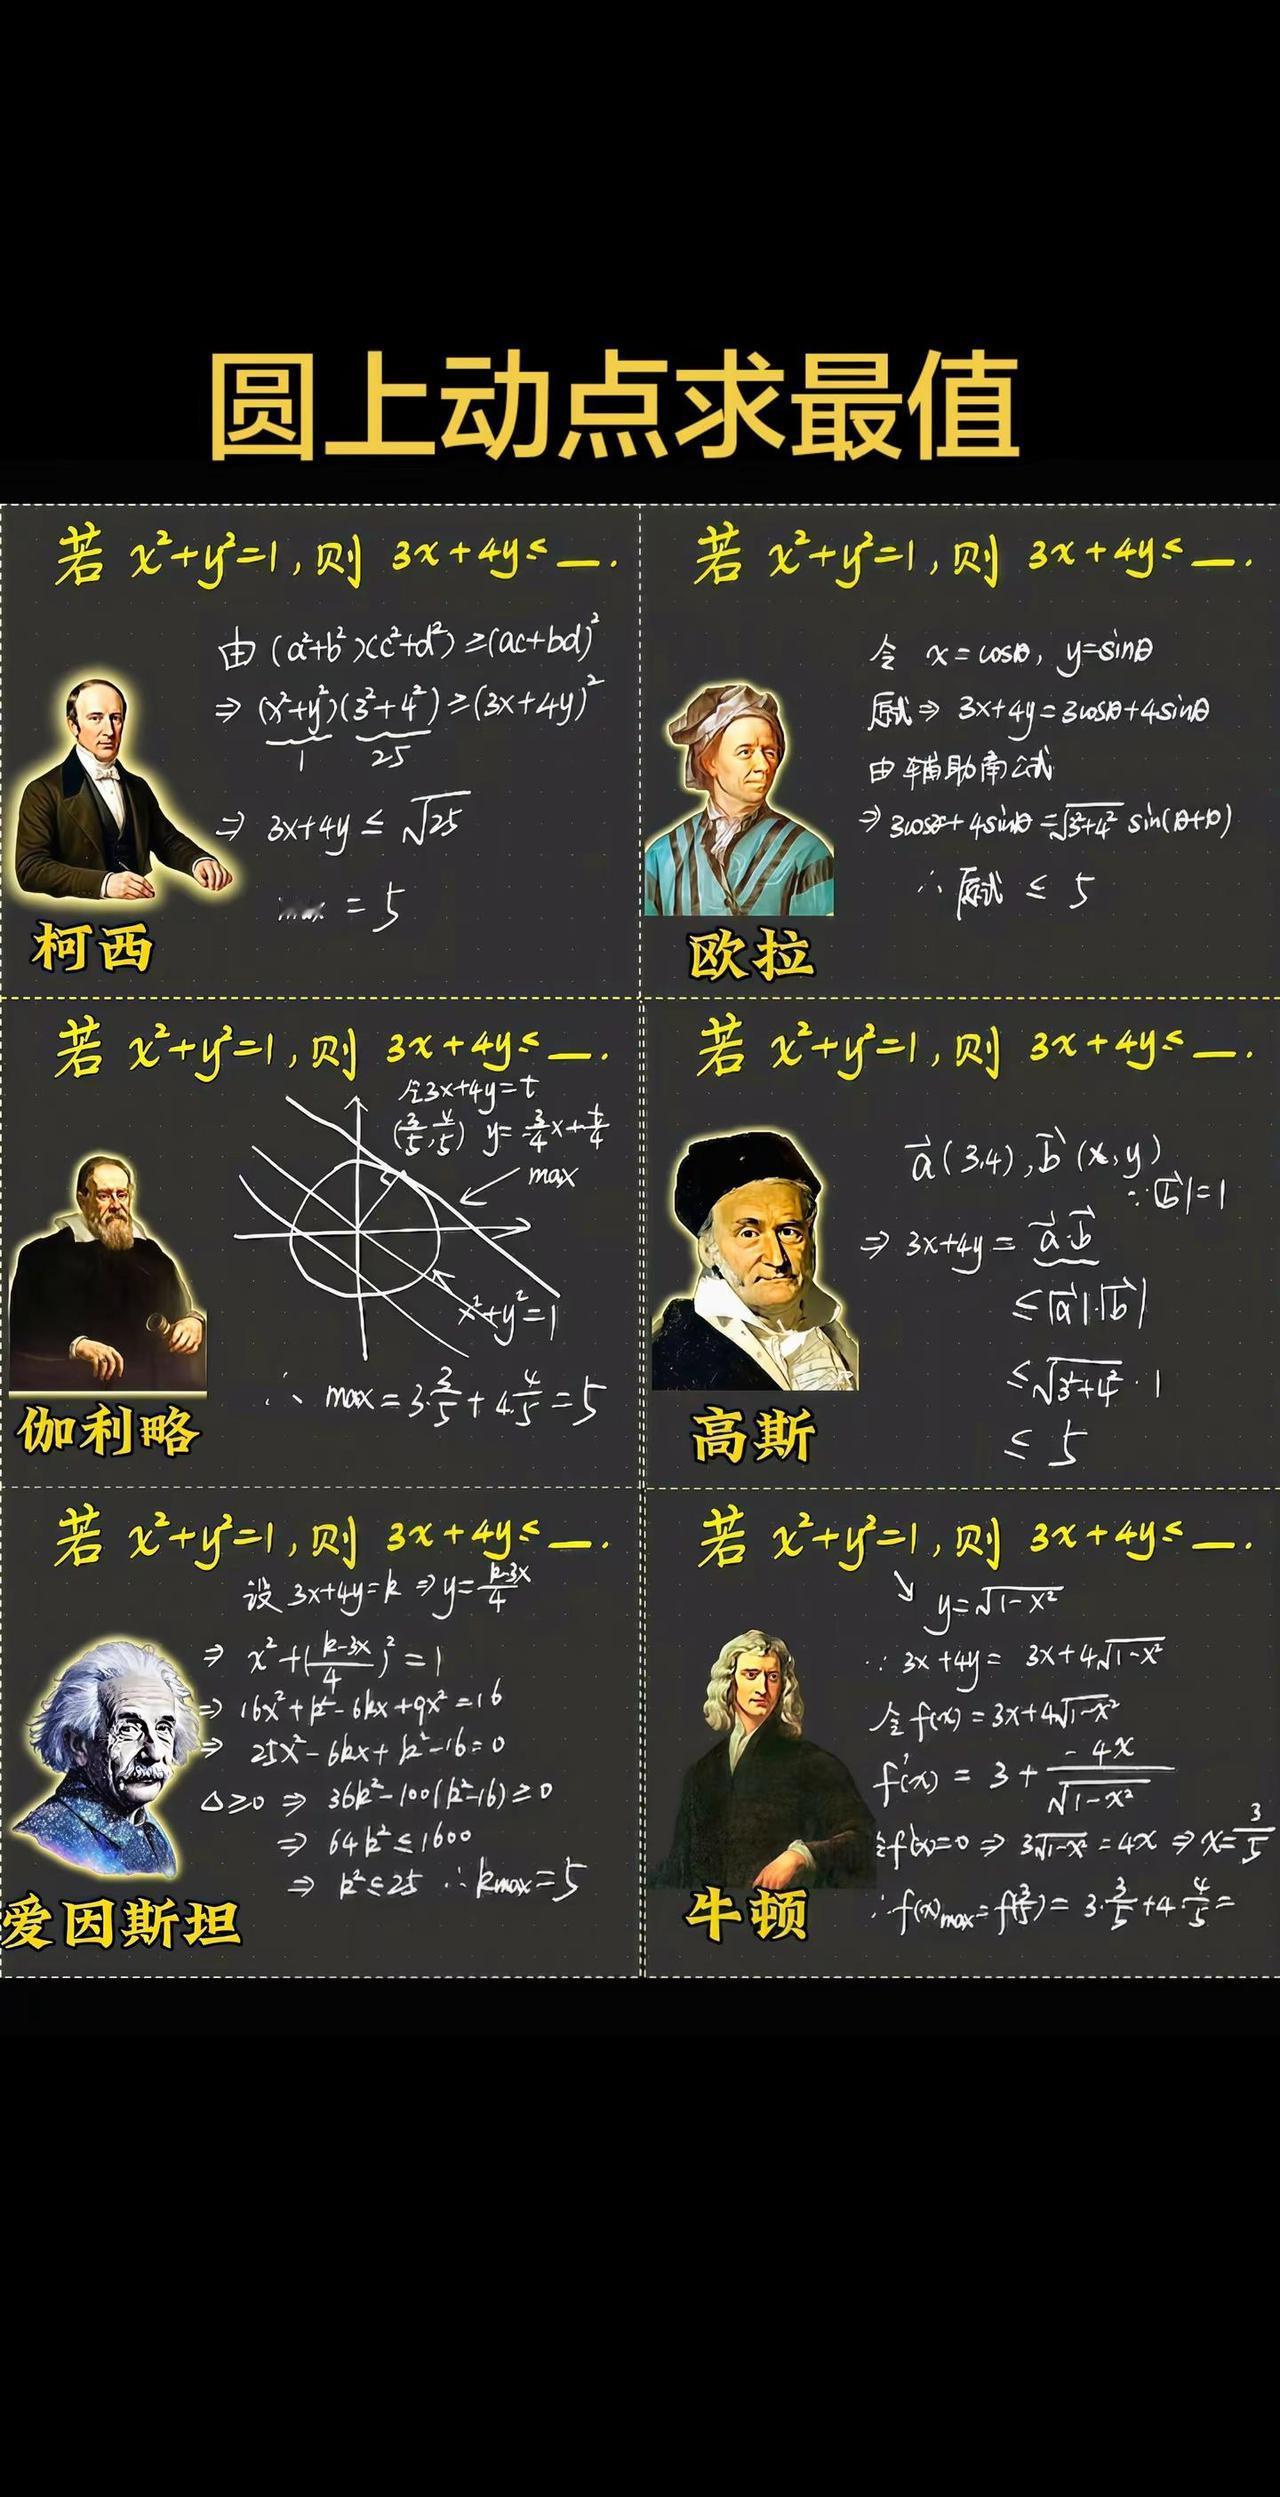 圆上动点求最值
若 x²+y²=1, 则 3x+4y≤__.
由 (a²+b²)(c²+d²)≥(ac+bd)²
⇒ (x²+y²)(3²+4²)≥(3x+4y)²
1 25
⇒ 3x+4y ≤ √25
max = 5
柯西
若 x²+y²=1, 则 3x+4y≤__.
令 x=cosθ, y=sinθ
原式⇒ 3x+4y=3cosθ+4sinθ
由辅助角公式
⇒ 3cosθ+4sinθ=√3²+4² sin(θ+φ)
∴ 原式 ≤ 5
欧拉
若 x²+y²=1, 则 3x+4y≤__.
令3x+4y=t
(3/5, 4/5) y=-3/4x+t/4
max
x²+y²=1
∴ max=3·3/5+4·4/5=5
伽利略
若 x²+y²=1, 则 3x+4y≤__.
a⃗(3,4), b⃗(x,y)
∵|b⃗|=1
⇒ 3x+4y = a⃗·b⃗
≤|a⃗|·|b⃗|
≤√3²+4²·1
≤ 5
高斯
若 x²+y²=1, 则 3x+4y≤__.
设 3x+4y=k ⇒y=k-3x/4
⇒ x²+(k-3x/4)²=1
⇒ 16x²+k²-6kx+9x²=16
⇒ 25x²-6kx+k²-16=0
Δ≥0 ⇒ 36k²-100(k²-16)≥0
⇒ 64k²≤1600
⇒ k²≤25 ∴kmax=5
爱因斯坦
若 x²+y²=1, 则 3x+4y≤__.
y=√1-x²
∵ 3x+4y= 3x+4√1-x²
令f(x)=3x+4√1-x²
f'(x) = 3+ -4x/√1-x²
令f'(x)=0 ⇒ 3√1-x²=4x ⇒x=3/5
∴f(x)max=f(3/5)=3·3/5+4·4/5=
牛顿